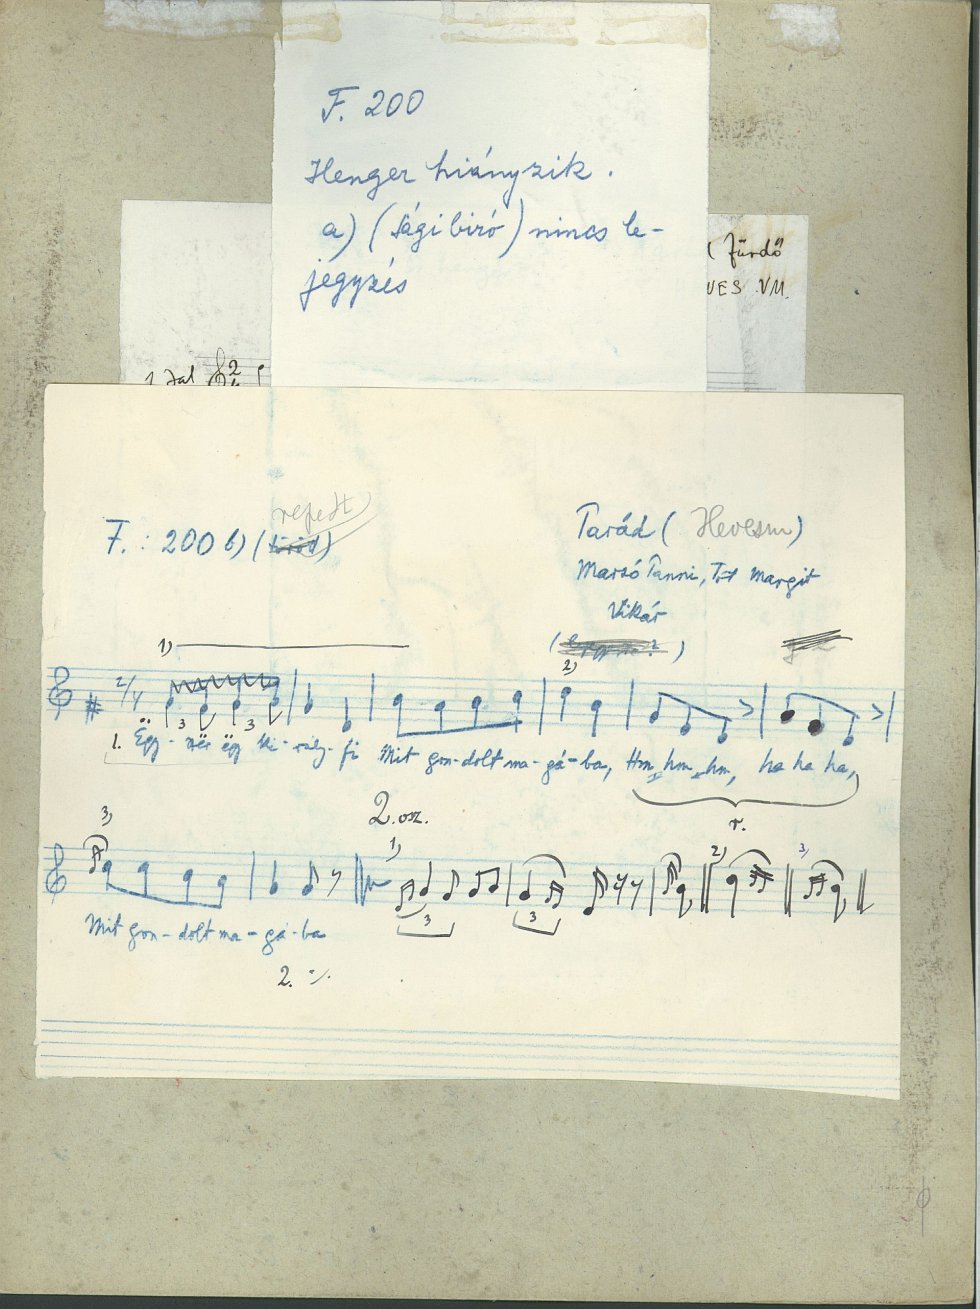 F. 200
Henger hiányzik.
a) (sági biró) nincs le-
jegyzés
Fürdő
VES VM.
1. dal 2
F.: 200 b) (repedt)
Tarád (Hevesm)
Marsó Panni, Tót Margit
Vikár
1)
2)
2/4
3 3
1. Ëgy-szër ëgy ki-rály-fi Mit gon-dolt ma-gá-ba, Hm, hm, hm, ha ha ha,
r.
3)
2. vsz.
1)
2)
3)
3 3
Mit gon-dolt ma-gá-ba
2. ·/.